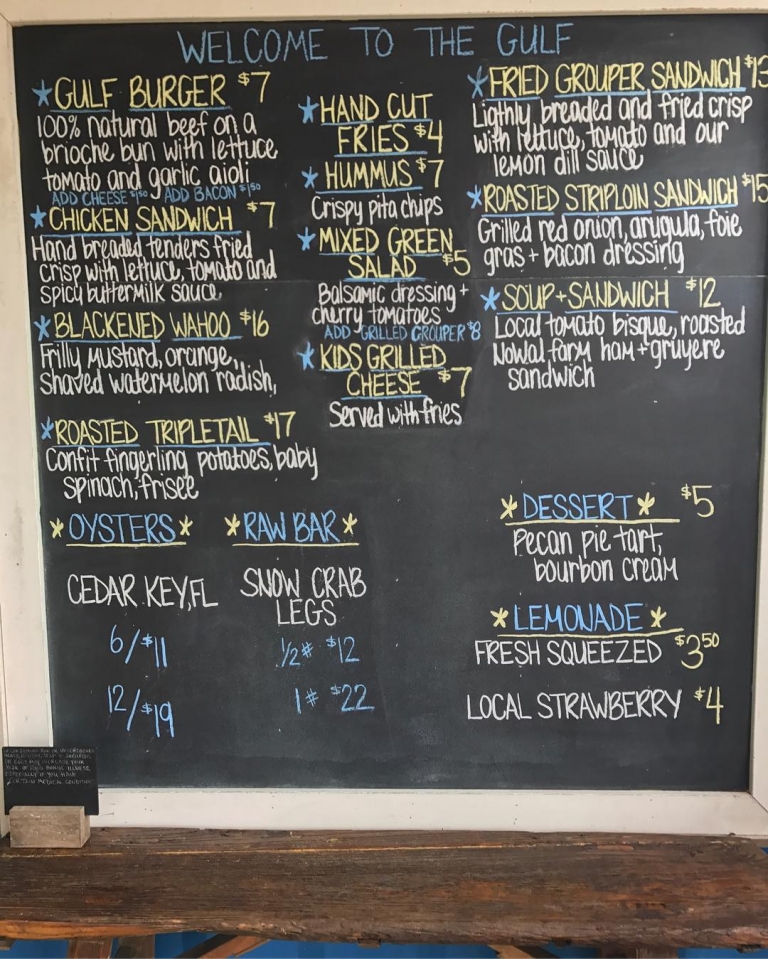 WELCOME TO THE GULF
*GULF BURGER $7
100% natural beef on a
brioche bun with lettuce
tomato and garlic aioli
ADD CHEESE $1.50 ADD BACON $1.50
*CHICKEN SANDWICH $7
Hand breaded tenders fried
crisp with lettuce, tomato and
spicy buttermilk sauce
*BLACKENED WAHOO $16
Frilly mustard, orange,
shaved watermelon radish,
*ROASTED TRIPLETAIL $17
Confit fingerling potatoes, baby
spinach, frisee
*HAND CUT
FRIES $4
*HUMMUS $7
Crispy pita chips
*MIXED GREEN
SALAD $5
Balsamic dressing +
cherry tomatoes
ADD GRILLED GROUPER $8
*KIDS GRILLED
CHEESE $7
Served with fries
*FRIED GROUPER SANDWICH $13
Ligthly breaded and fried crisp
with lettuce, tomato and our
lemon dill sauce
*ROASTED STRIPLOIN SANDWICH $15
Grilled red onion, arugula, foie
gras + bacon dressing
*SOUP+SANDWICH $12
Local tomato bisque, roasted
Nowal farm ham + gruyere
sandwich
*OYSTERS*
CEDAR KEY, FL
6/$11
12/$19
*RAW BAR*
SNOW CRAB
LEGS
1/2# $12
1# $22
*DESSERT* $5
Pecan pie tart,
bourbon cream
*LEMONADE*
FRESH SQUEEZED $3.50
LOCAL STRAWBERRY $4